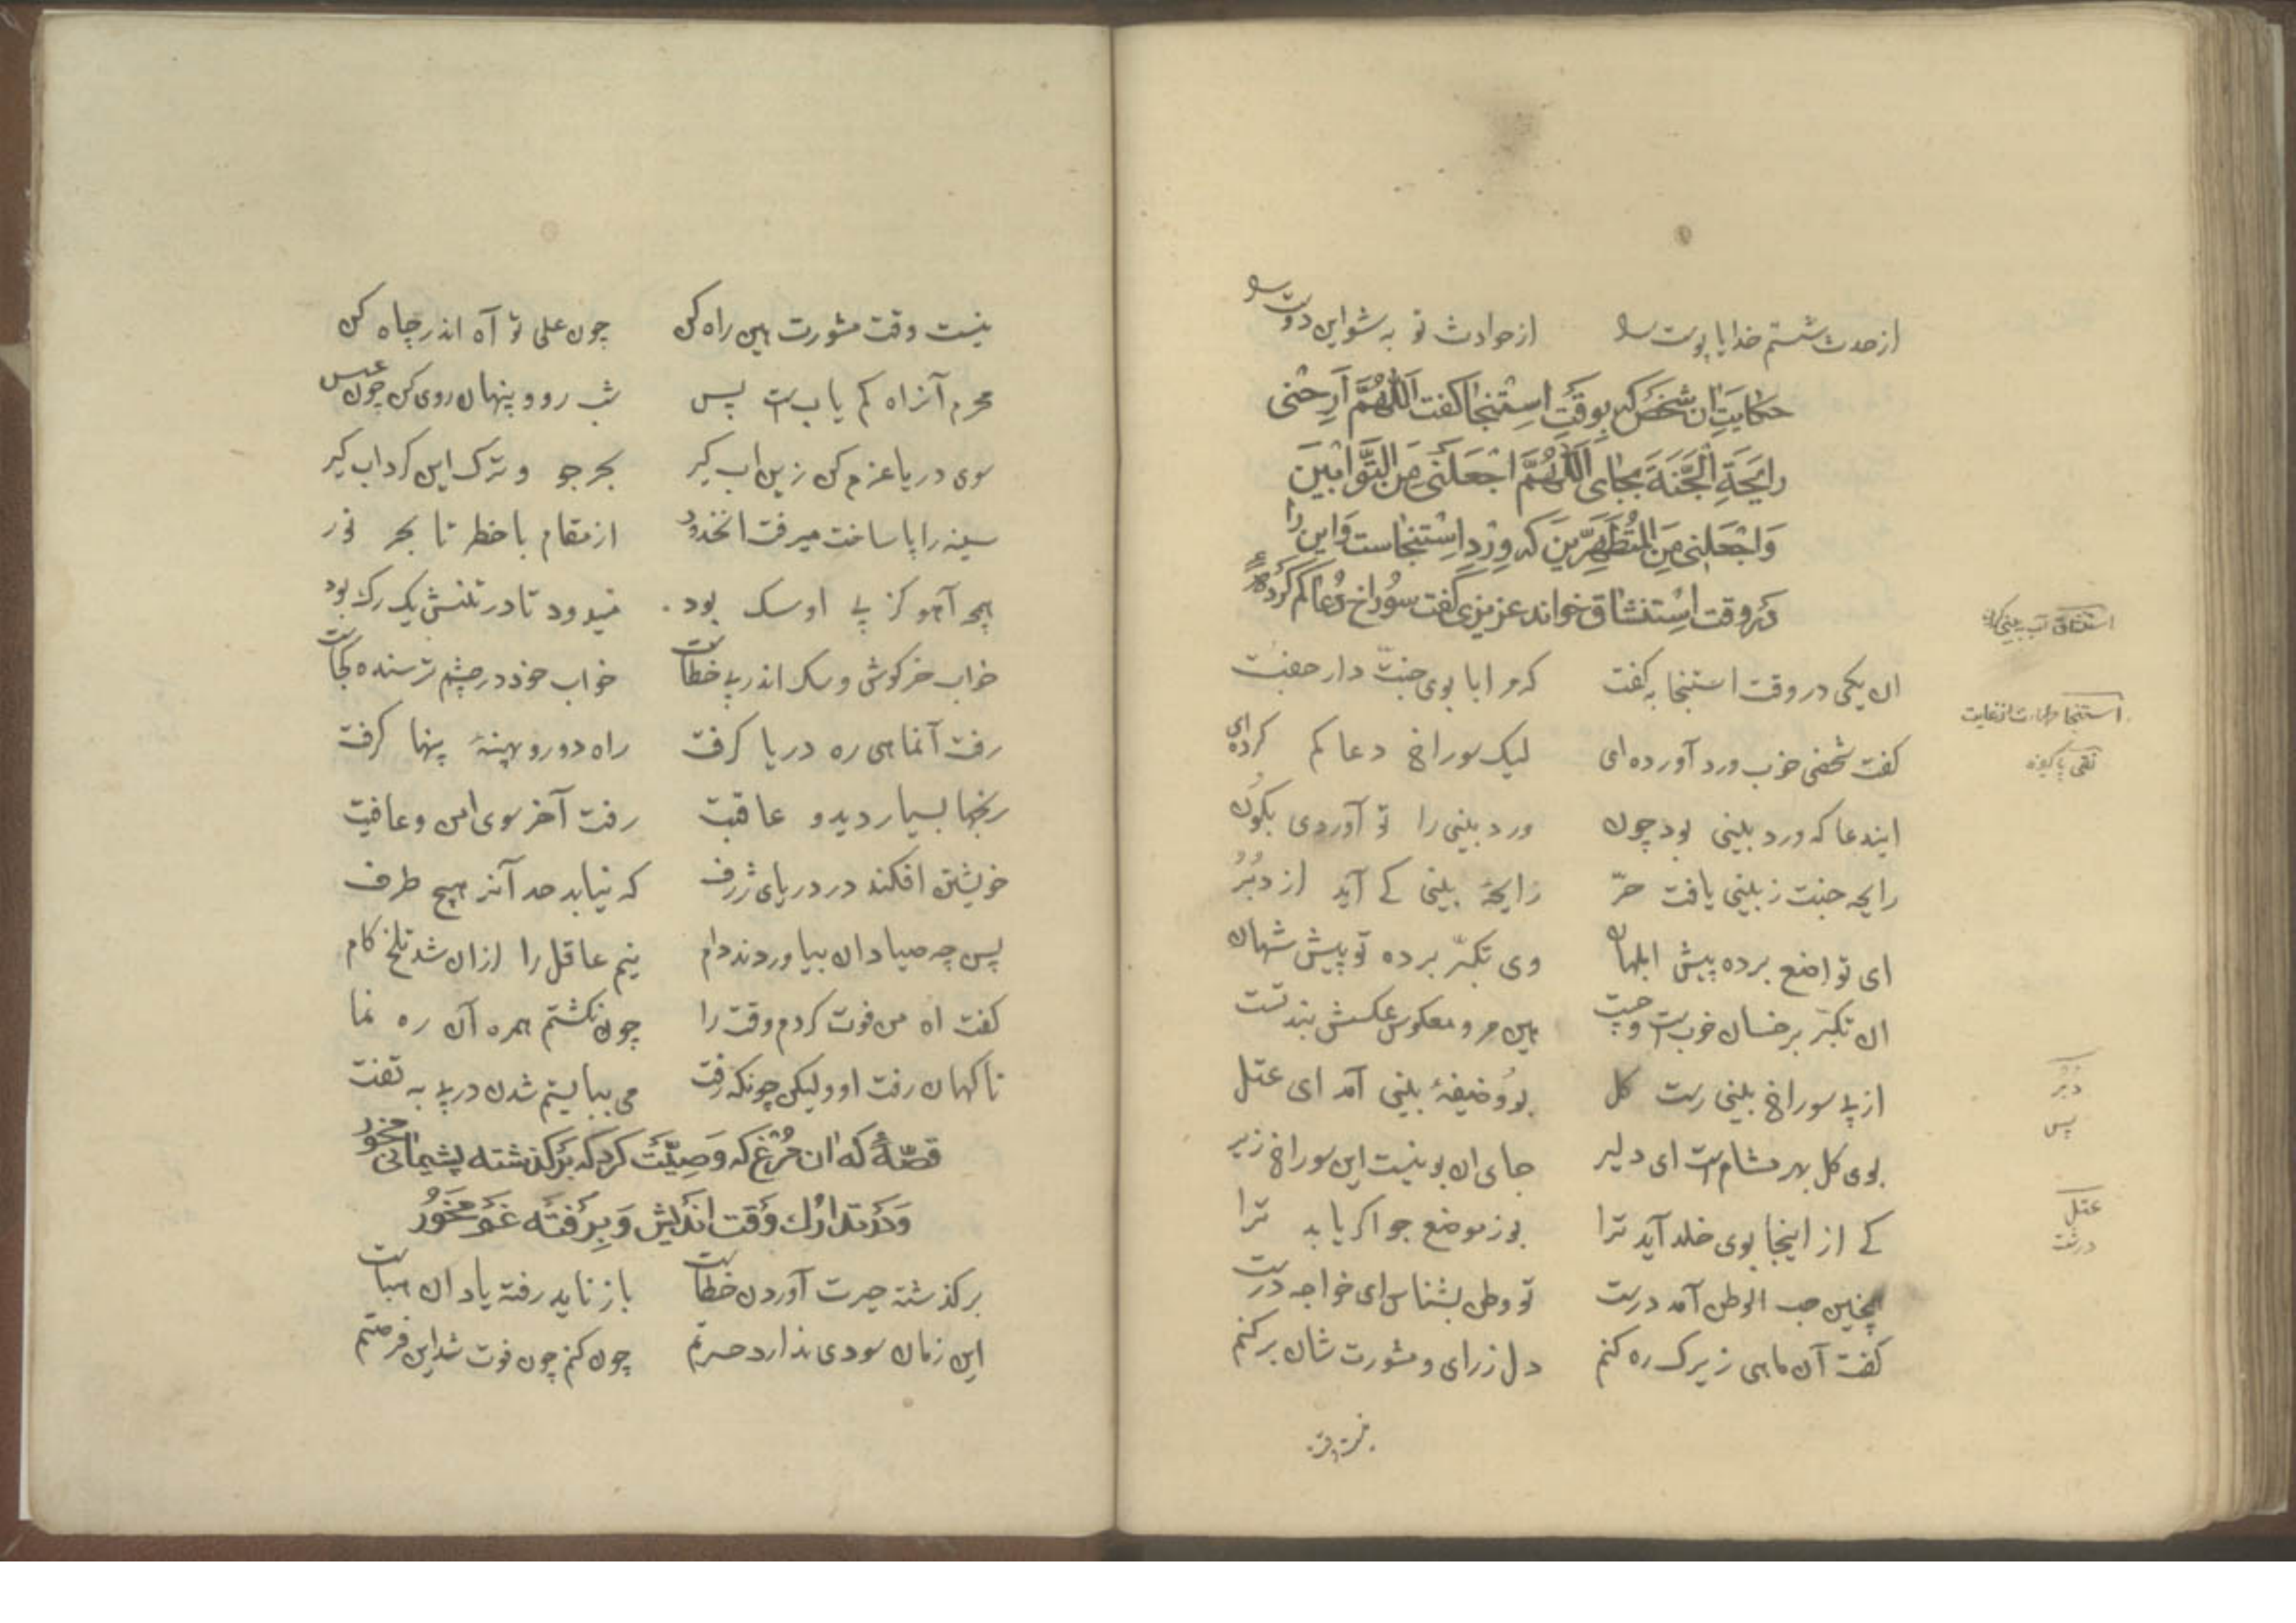 از حدث شستم خدایا پوست را از حوادث تو به شو این دوست را
حکایت ان شخص که بوقت استنجا کفت اللهم ارحنی
رایحة الجنة بجای اللهم اجعلنی من التوابین
واجعلنی من المتطهرین که ورد استنجاست و این را
در وقت استنشاق خواند عزیزی کفت سوراخ دعا کم کردهٔ
ان یکی در وقت استنجا به کفت که مرا با بوی جنت دار جفت
کفت شخصی خوب ورد آورده‌ای لیک سوراخ دعا کم کرده‌ای
ایندعا که ورد بینی بود چون ورد بینی را تو آوردی بکون
رایحه جنت ز بینی یافت حر رایحهٔ بینی کے آید از دبر
ای تواضع برده پیش ابلهان وی تکبر برده تو پیش شهان
ان تکبر بر خسان خوبست و چست هین مرو معکوس عکسش بند تست
از پے سوراخ بینی رست کل بو وضیفهٔ بینی آمد ای عتل
بوی کل بهر مشامست ای دلیر جای ان بو نیست این سوراخ زیر
کے از اینجا بوی خلد آید ترا بو ز موضع جو اکر باید ترا
همچنین حب الوطن آمد درست تو وطن بشناس ای خواجه درست
کفت آن ماهی زیرک ره کنم دل ز رای و مشورت شان بر کنم
استنشاق آب به بینی
استنجا
دبر
پس
عتل
درشت
نیست وقت مشورت هین راه کن چون علی تو آه اندر چاه کن
محرم آنراه کم یابست پس شب رو و پنهان روی کن چون عسس
سوی دریا عزم کن زین اب کیر بحر جو و ترک این کرداب کیر
سینه را پا ساخت میرفت انحذور از مقام با خطر تا بحر نور
همچو آهو کز پے او سک بود میدود تا در تنش یک رک بود
خواب خرکوش و سک اندر پے خطاست خواب خود در چشم ترسنده کجاست
رفت آنماهی ره دریا کرفت راه دور و پهنهٔ پهنا کرفت
رنجها بسیار دید و عاقبت رفت آخر سوی امن و عافیت
خویشتن افکند در دریای ژرف که نیابد حد آنرا هیچ طرف
پس چه صیادان بیاوردند دام نیم عاقل را ازان شد تلخ کام
کفت اه من فوت کردم وقت را چون نکشتم همره آن ره نما
ناکهان رفت او ولیکن چونکه رفت می ببایستم شدن در پے به تفت
قصهٔ که ان مرغ که وصیت کرد که بر کذشته پشیمانی مخور
و در تدارک وقت اندیش و برفته غم مخور
بر کذشته حسرت آوردن خطاست باز ناید رفته یاد ان هباست
این زمان سودی ندارد حسرتم چون کنم چون فوت شد این فرصتم